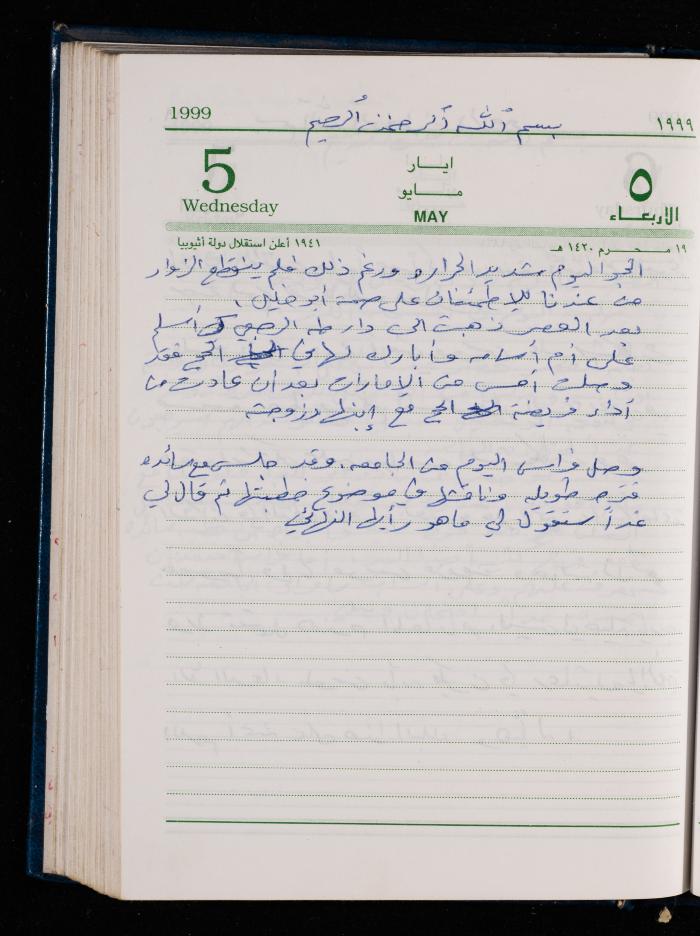 1999 ١٩٩٩
بسم الله الرحمن الرحيم
5 ايار ٥
مايو
Wednesday MAY الاربعاء
١٩ محرم ١٤٢٠ هـ ١٩٤١ أعلن استقلال دولة أثيوبيا
الجو اليوم شديد الحراره ورغم ذلك فلم ينقطع الزوار
من عندنا للإطمئنان على صحة أبو خليل .
بعد العصر ذهبت الى دار طه الرضي لأسلم
على أم أسامه وأبارك لها في الحج فقد
وصلت أمس من الإمارات بعد أن عادت من
أداء فريضة الحج مع إبنها وزوجته
وصل فراس اليوم من الجامعه. وقد جلس مع رائده
فتره طويله وناقشها في موضوع خطبتها ثم قال لي
غداً ستقول لي ماهو رأيها النهائي